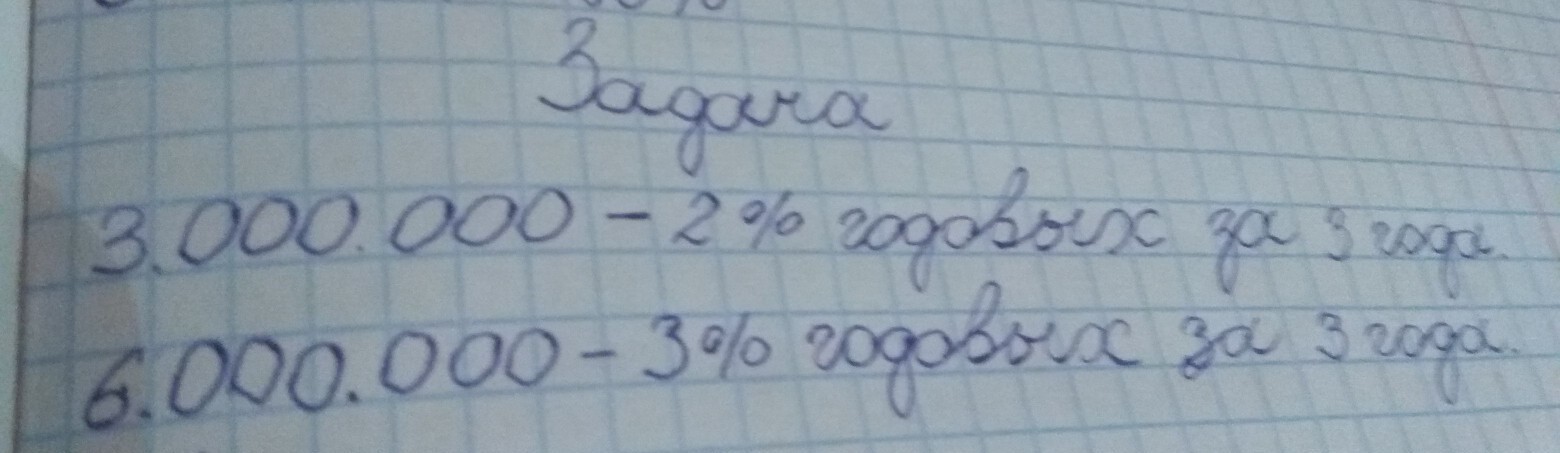 Задача
3.000.000 - 2% годовых за 3 года.
6.000.000 - 3% годовых за 3 года.